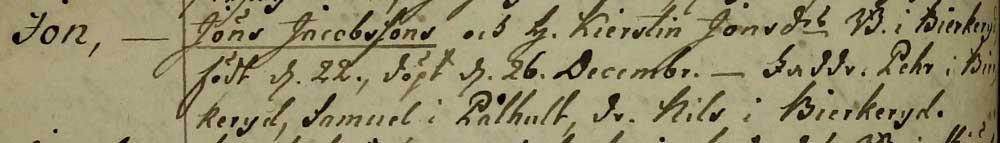 Jon, — Jöns Jacobssons och H. Kierstin Jonsdr B. i Bierkeryd
födt d. 22., döpt d. 26. Decembr. — Faddr. Pehr i Bier
keryd, Samuel i Påhult, dr. Nils i Bierkeryd.